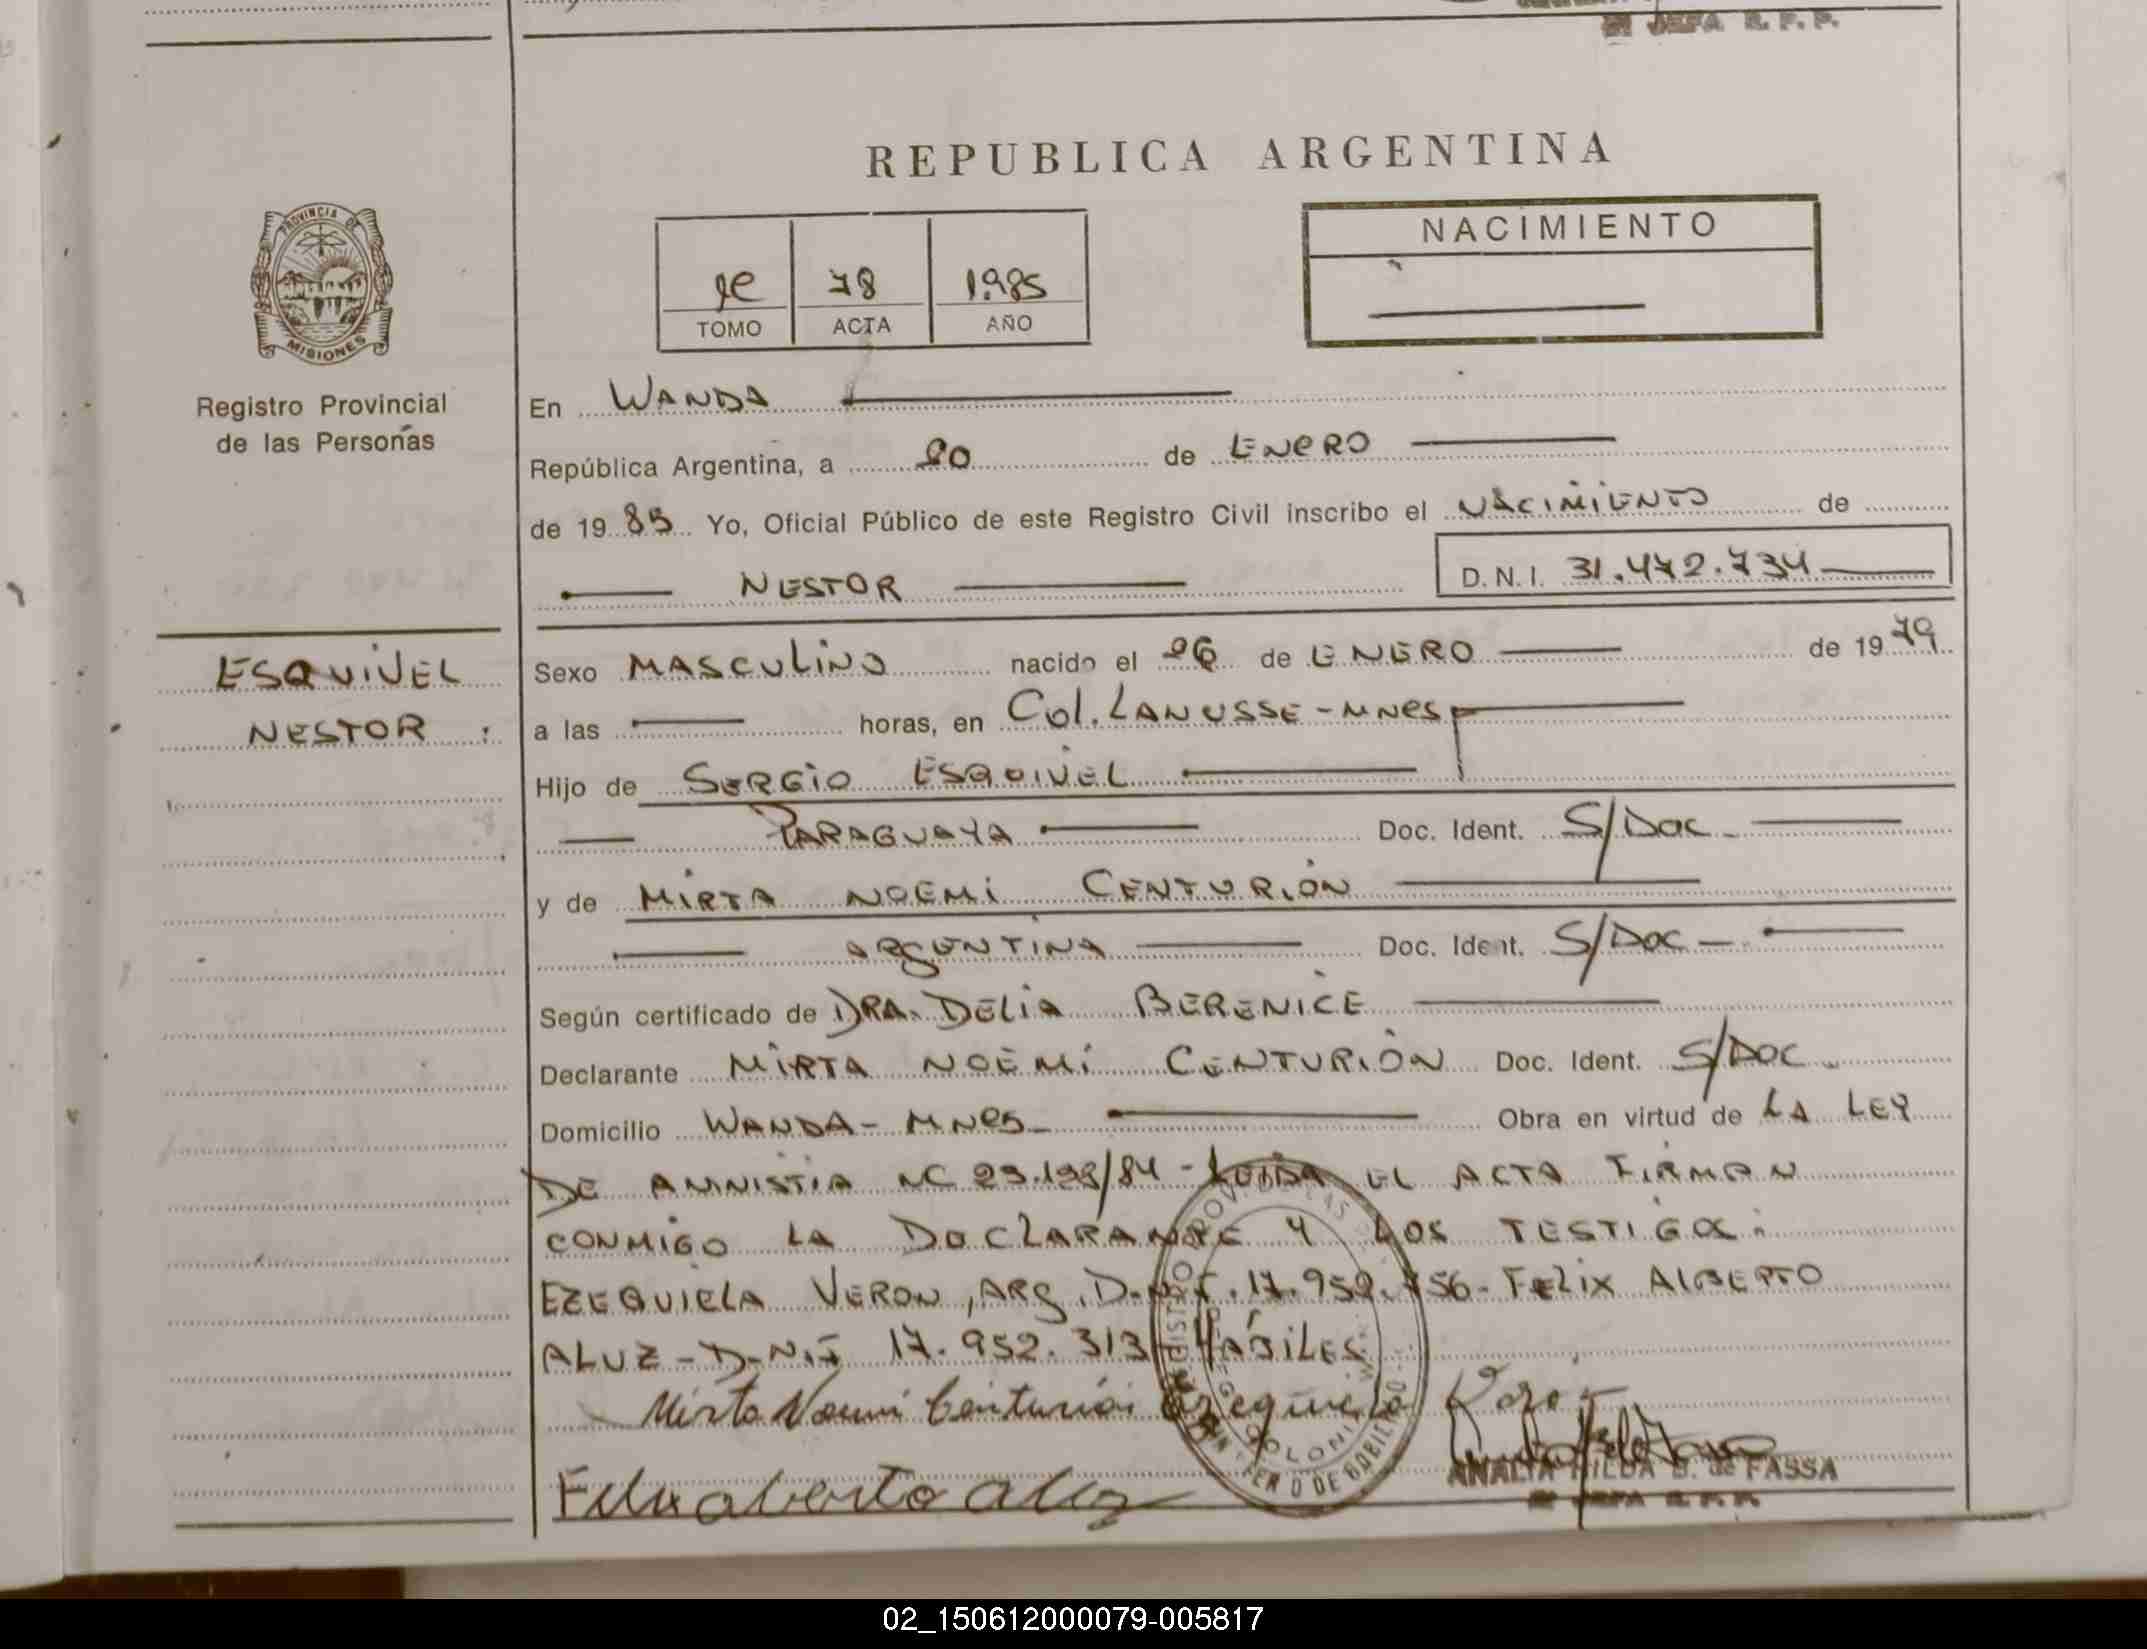 JEFA R. P. P.
REPUBLICA ARGENTINA
NACIMIENTO
78 1985
TOMO ACTA AÑO
PROVINCIA DE
MISIONES
Registro Provincial
de las Personas
En WANDA
República Argentina, a 20 de ENERO
de 1985 Yo, Oficial Público de este Registro Civil inscribo el NACIMIENTO de
NESTOR D. N. I. 31.472.734
ESQUIVEL
NESTOR
Sexo MASCULINO nacido el 26 de ENERO de 1979
a las horas, en Col. LANUSSE - MNES
Hijo de SERGIO ESQUIVEL
PARAGUAYA Doc. Ident. S/Doc
y de MIRTA NOEMI CENTURION
ARGENTINA Doc. Ident. S/Doc
Según certificado de DRA. DELIA BERENICE
Declarante MIRTA NOEMI CENTURION Doc. Ident. S/DOC
Domicilio WANDA - MNES Obra en virtud de LA LEY
DE AMNISTIA 23.128/84 - LEIDA EL ACTA FIRMAN
CONMIGO LA DECLARANTE Y LOS TESTIGOS:
EZEQUIELA VERON, ARG. D.N.I. 17.952.756 - FELIX ALBERTO
ALUZ - D.N.I 17.952.313 HÁBILES
Mirta Noemi Centurion Ezequiela
Felix alberto aluz
ANALIA HILDA B. de FASSA
JEFA R. P. P.
02_150612000079-005817